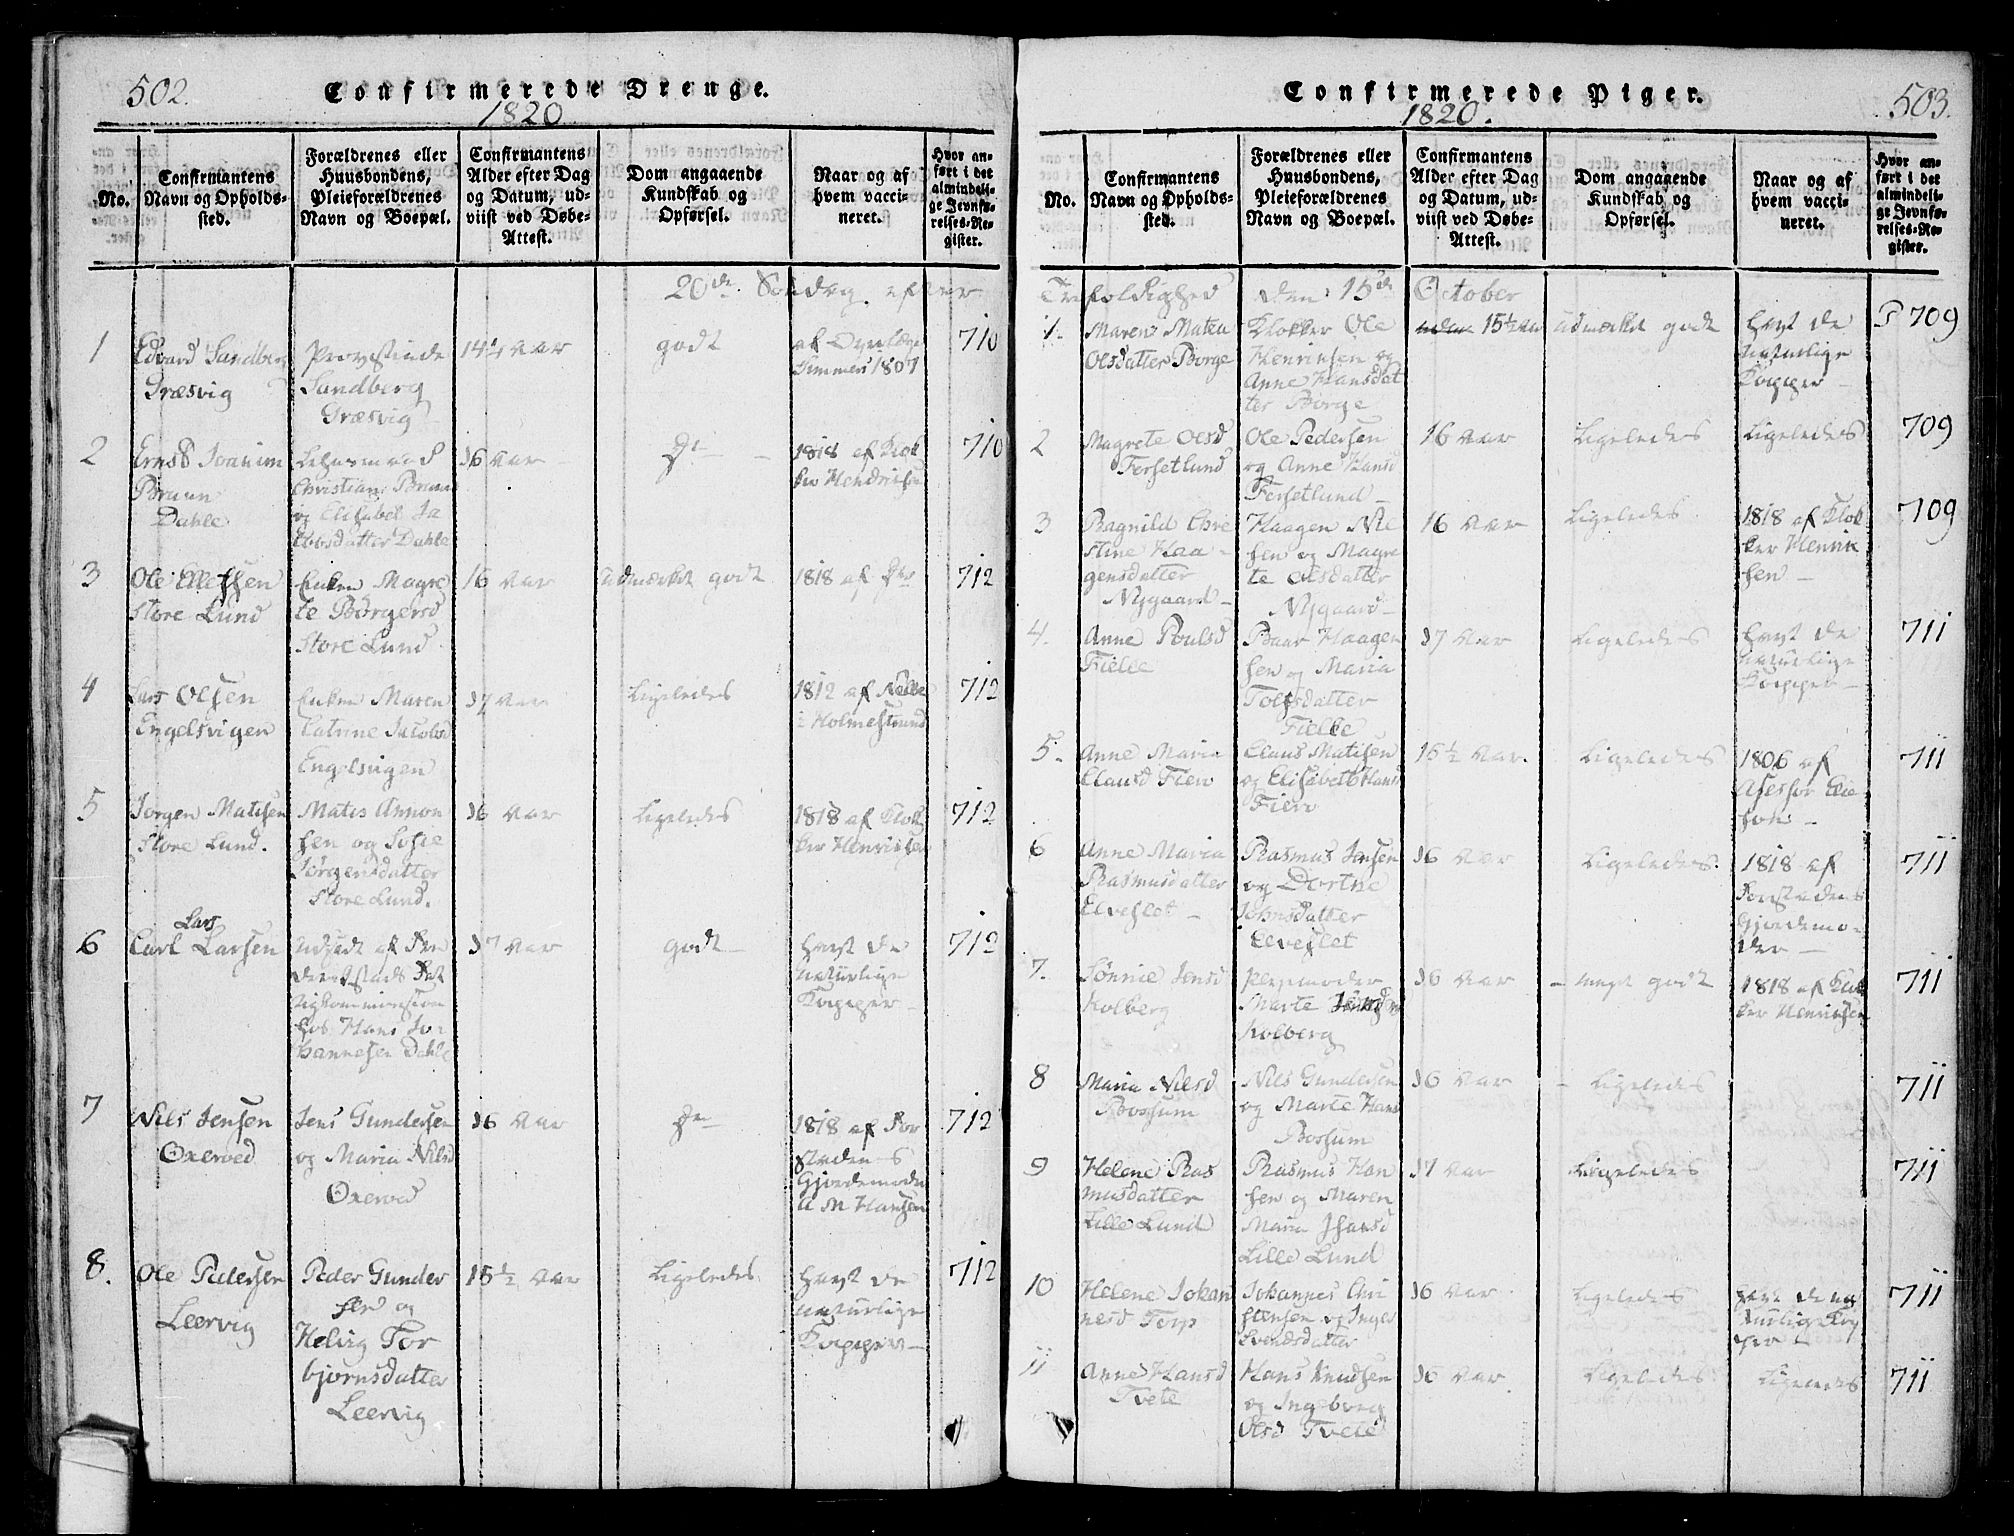 502.
Confirmerede Drenge.
1820
No.
Confirmantens Navn og Opholdssted.
Forældrenes eller Huusbondens, Pleieforældrenes Navn og Boepæl.
Confirmantens Alder efter Dag og Datum, udviist ved Døbe-Attest.
Dom angaaende Kundskab og Opførsel.
Naar og af hvem vaccineret.
Hvor anført i det almindelige Jevnførelses-Register.
20de Søndag efter
1
Edvard Sandberg
Græsvig
Provstinde
Sandberg
Græsvig
14 1/4 Aar
godt
1807
710
2
Ernst Joakim
Bruun
Dahle
Christian Bruun
og Elisabet Ja
cobsdatter Dahle
16 Aar
Do
1818 af Klok
ker Hendriksen
710
3
Ole Ellefsen
Store Lund
Enken Magre
te Børgersd
Store Lund
16 Aar
udmærket godt
1818 af Do
712
4
Lars Olsen
Engelsvigen
Enken Maren
Catrine Jacobsd
Engelsvigen
17 Aar
Ligeledes
1812 af
i Holmestrand
712
5
Jørgen Matisen
Store Lund.
Mates Annon
sen og Sofie
Jørgensdatter
Store Lund.
16 Aar
Ligeledes
1818 af Klok
ker Henriksen
712
6
Lars
Carl Larsen
Udsadt af Fre
derikstads Fat
tigkommission
hos Hans Jo
hannesen Dahle
17 Aar
godt
havt de
naturlige
Kopper
712
7
Nils Jensen
Oxerød
Jens Gundersen
og Maria Nilsd
Oxerød
16 Aar
Do
1818 af For
stadens
Gjordemoder
A M Hansen
712
8.
Ole Pedersen
Leervig
Peder Gunder
sen og
Helvig Tor
bjørnsdatter
Leervig
15 1/2 Aar
Ligeledes
havt de
naturlige
Kopper
712
503.
Confirmerede Piger.
1820.
No.
Confirmantens Navn og Opholdssted.
Forældrenes eller Huusbondens, Pleieforældrenes Navn og Boepæl.
Confirmantens Alder efter Dag og Datum, udviist ved Døbe-Attest.
Dom angaaende Kundskab og Opførsel.
Naar og af hvem vaccineret.
Hvor anført i det almindelige Jevnførelses-Register.
Trefoldighed den 15de October
1.
Maren Matea
Olsdatter Borge
Klokker Ole
Henriksen og
Anne Hansdat
ter Borge
15 1/2 Aar
udmærket godt
havt de
naturlige
Kopper
P 709
2
Magrete Olsd
Fersetlund
Ole Pedersen
og Anne Hansd
Fersetlund
16 Aar
Ligeledes
Ligeledes
709
3
Ragnild Chri
stine Haa-
gensdatter
Nygaard
Haagen Nil
sen og Magre
te Olsdatter
Nygaard
16 Aar
Ligeledes
1818 af Klok
ker Henrik
sen
709
4.
Anne Poulsd
Fielle
Haagen
sen og Maria
Tolfsdatter
Fielle
17 Aar
Ligeledes
havt de
naturlige
Kopper
711
5.
Anne Maria
Clausd Fiere
Claus Matisen
og Elisabet Hansd
Fiere
15 1/2 Aar.
Ligeledes
1806 af
Assessor
711
6
Anne Maria
Rasmusdatter
Elveflot
Rasmus Jensen
og Dortne
Johnsdatter
Elveflet
16 Aar
Ligeledes.
1818 af
Forstadens
Gjordemo-
der
711
7.
Tønnie Jensd
Kolberg
Pleiemoder
Marte
Kolberg
16 Aar
meget godt
1818 af Klok
ker Henriksen
711
8
Maria Nilsd
Bossum
Nils Gundersen
og Marte Hans
Bossum
16 Aar
Ligeledes
711
9
Helene Ras
musdatter
Lille Lund
Rasmus Han
sen og Maren
Maria
Lille Lund
17 Aar
Ligeledes
711
10
Helene Johan
nesd Torp
Johannes Chri
stensen og Inger
Svendsdatter
16 Aar
Ligeledes
havt de na
turlige Kop
per
711
11
Anne Hansd
Tvete
Hans Knudsen
og Ingeborg
Olsd Tvete
16 Aar
Ligeledes
Ligeledes
711